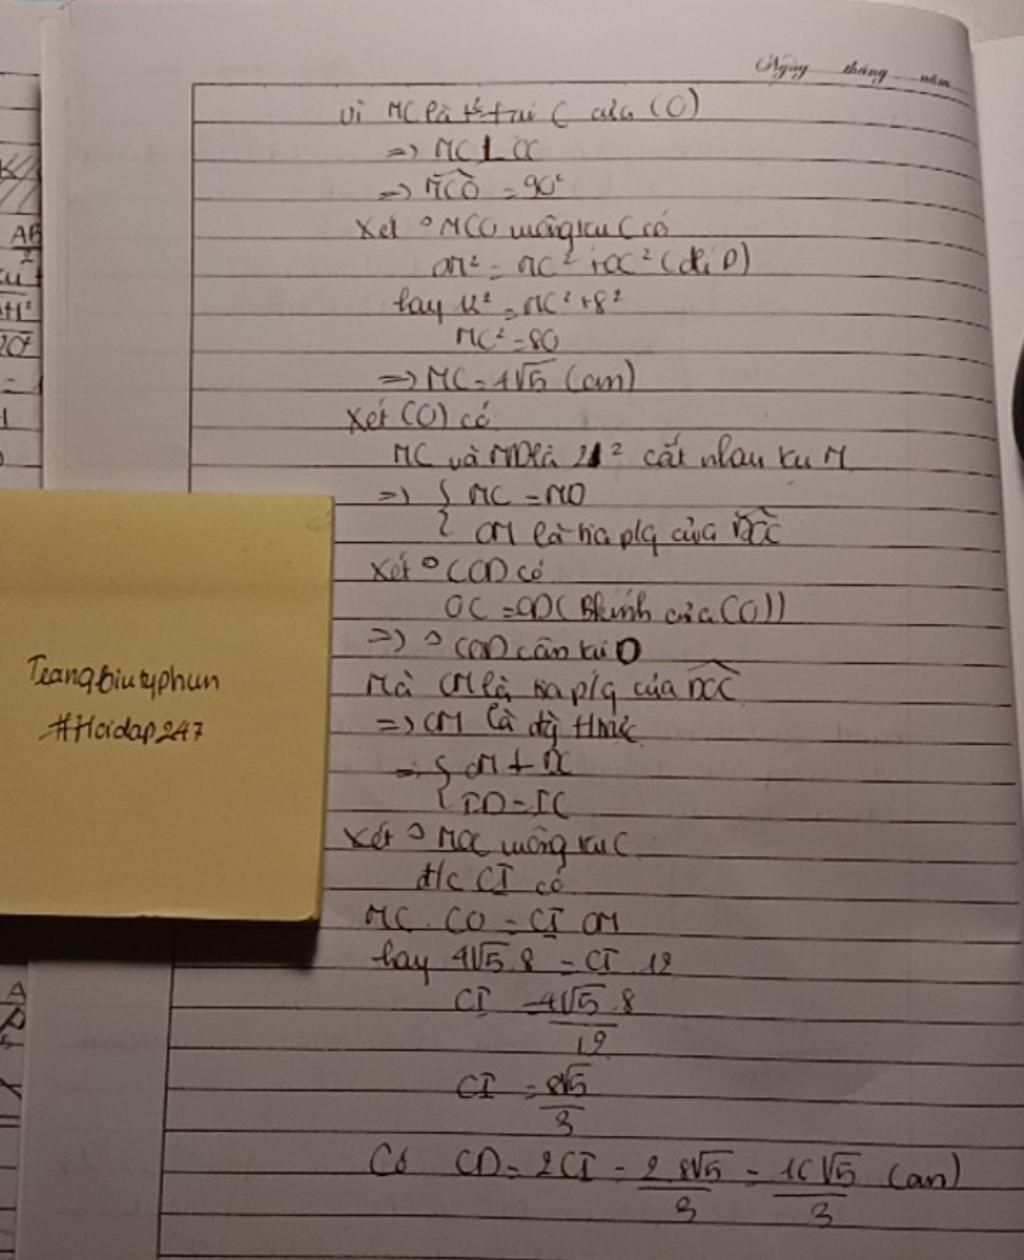 Ngày tháng năm
Vì MC là t² tại C của (O)
=> MC ⊥ OC
=> MCO = 90°
Xét △ MCO vuông tại C có
OM² = MC² + OC² (đl, P)
hay 12² = MC² + 8²
MC² = 80
=> MC = 4√5 (cm)
Xét (O) có
MC và MD là 2t² cắt nhau tại M
=> { MC = MD
{ OM là tia p/g của DOC
Xét △ COD có
OC = OD (Bkính của (O))
=> △ COD cân tại O
Mà OM là tia p/g của DOC
=> OM là đg
=> { OM ⊥ DC
{ ID = IC
Xét △ MOC vuông tại C
đ/c CI có
MC . CO = CI OM
hay 4√5 . 8 = CI . 12
CI = 4√5 . 8
12
CI = 8√5
3
Có CD = 2CI = 2.8√5 = 16√5 (cm)
3 3
Trangbiutyphun
#Hoidap247
K
AB
2
20²
=
A